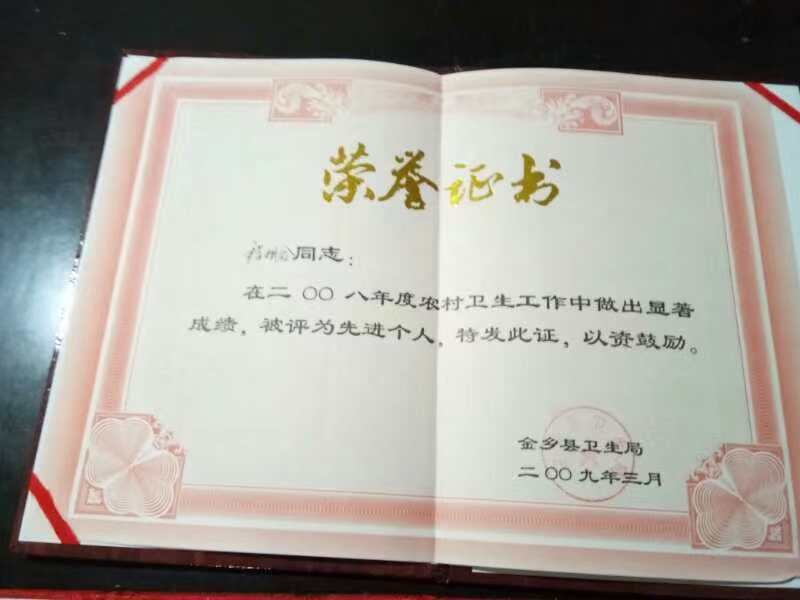 荣誉证书
同志：
在二〇〇八年度农村卫生工作中做出显著
成绩，被评为先进个人，特发此证，以资鼓励。
金乡县卫生局
二〇〇九年三月